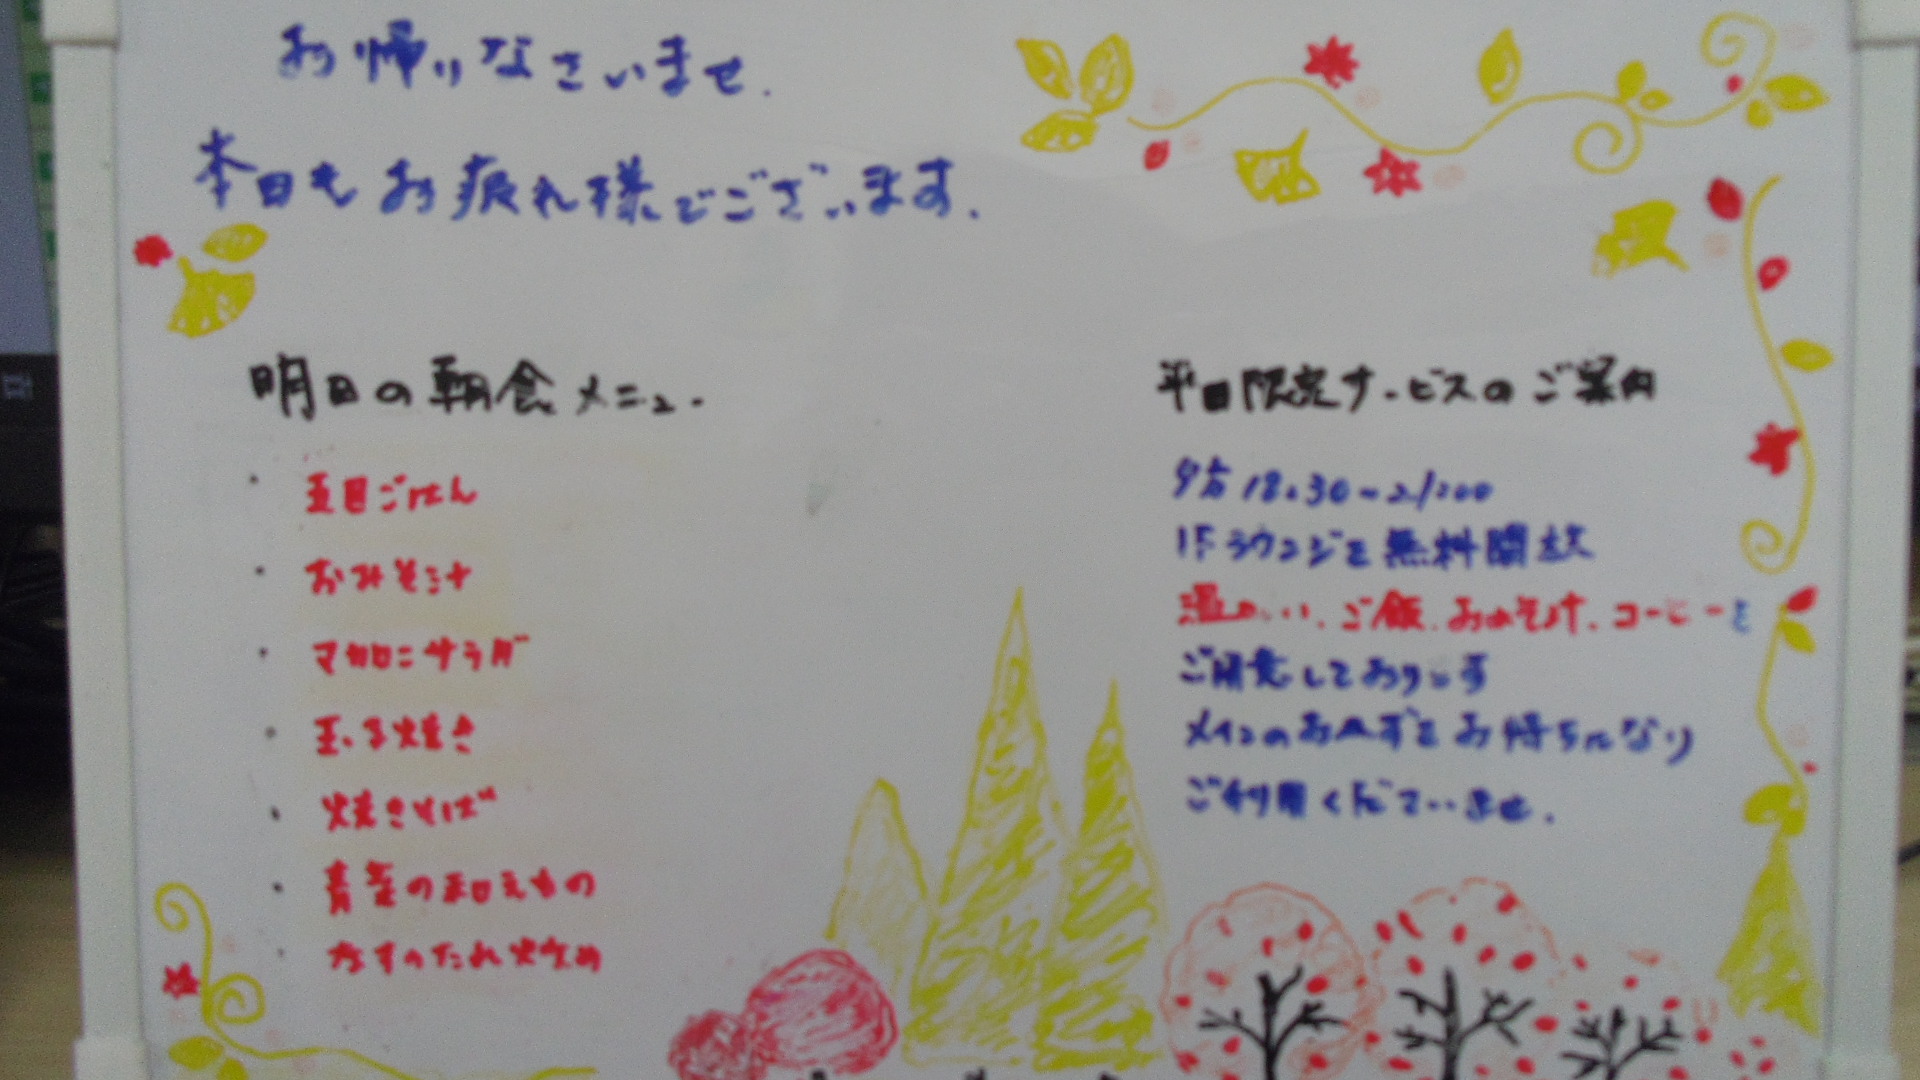 お帰りなさいませ.
本日もお疲れ様でございます.
明日の朝食メニュー
・五目ごはん
・おみそ汁
・マカロニサラダ
・玉子焼き
・焼きそば
・青菜の和えもの
・なすのたれ炒め
平日限定サービスのご案内
夕方 18:30~21:00
1Fラウンジを無料開放
温かい、ご飯、おみそ汁、コーヒーを
ご用意しております
メインのおかずをお持ちになり
ご利用くださいませ.